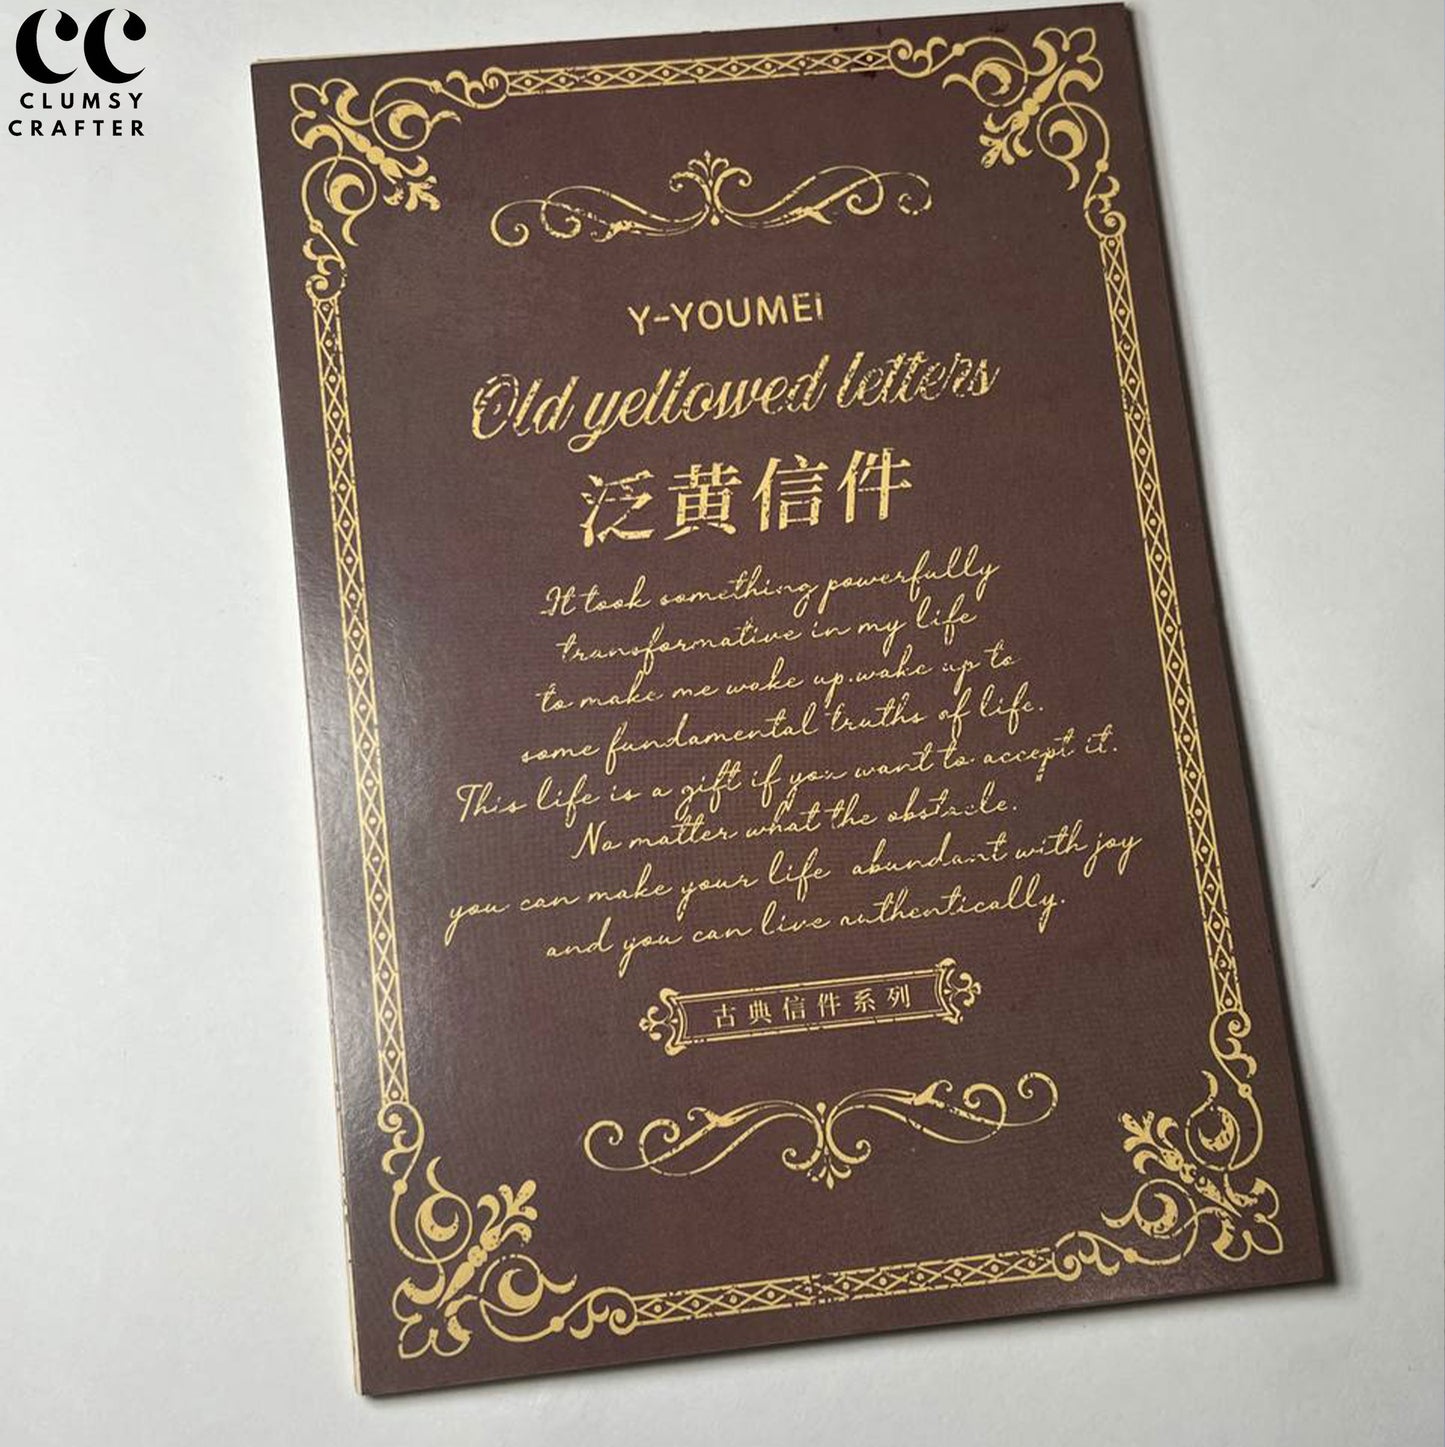 CC
CLUMSY
CRAFTER
Y-YOUMEi
Old yellowed letters
泛黄信件
It took something powerfully
transformative in my life
to make me woke up.wake up to
some fundamental truths of life.
This life is a gift if you want to accept it.
No matter what the obstacle.
you can make your life abundant with joy
and you can live authentically.
古典信件系列